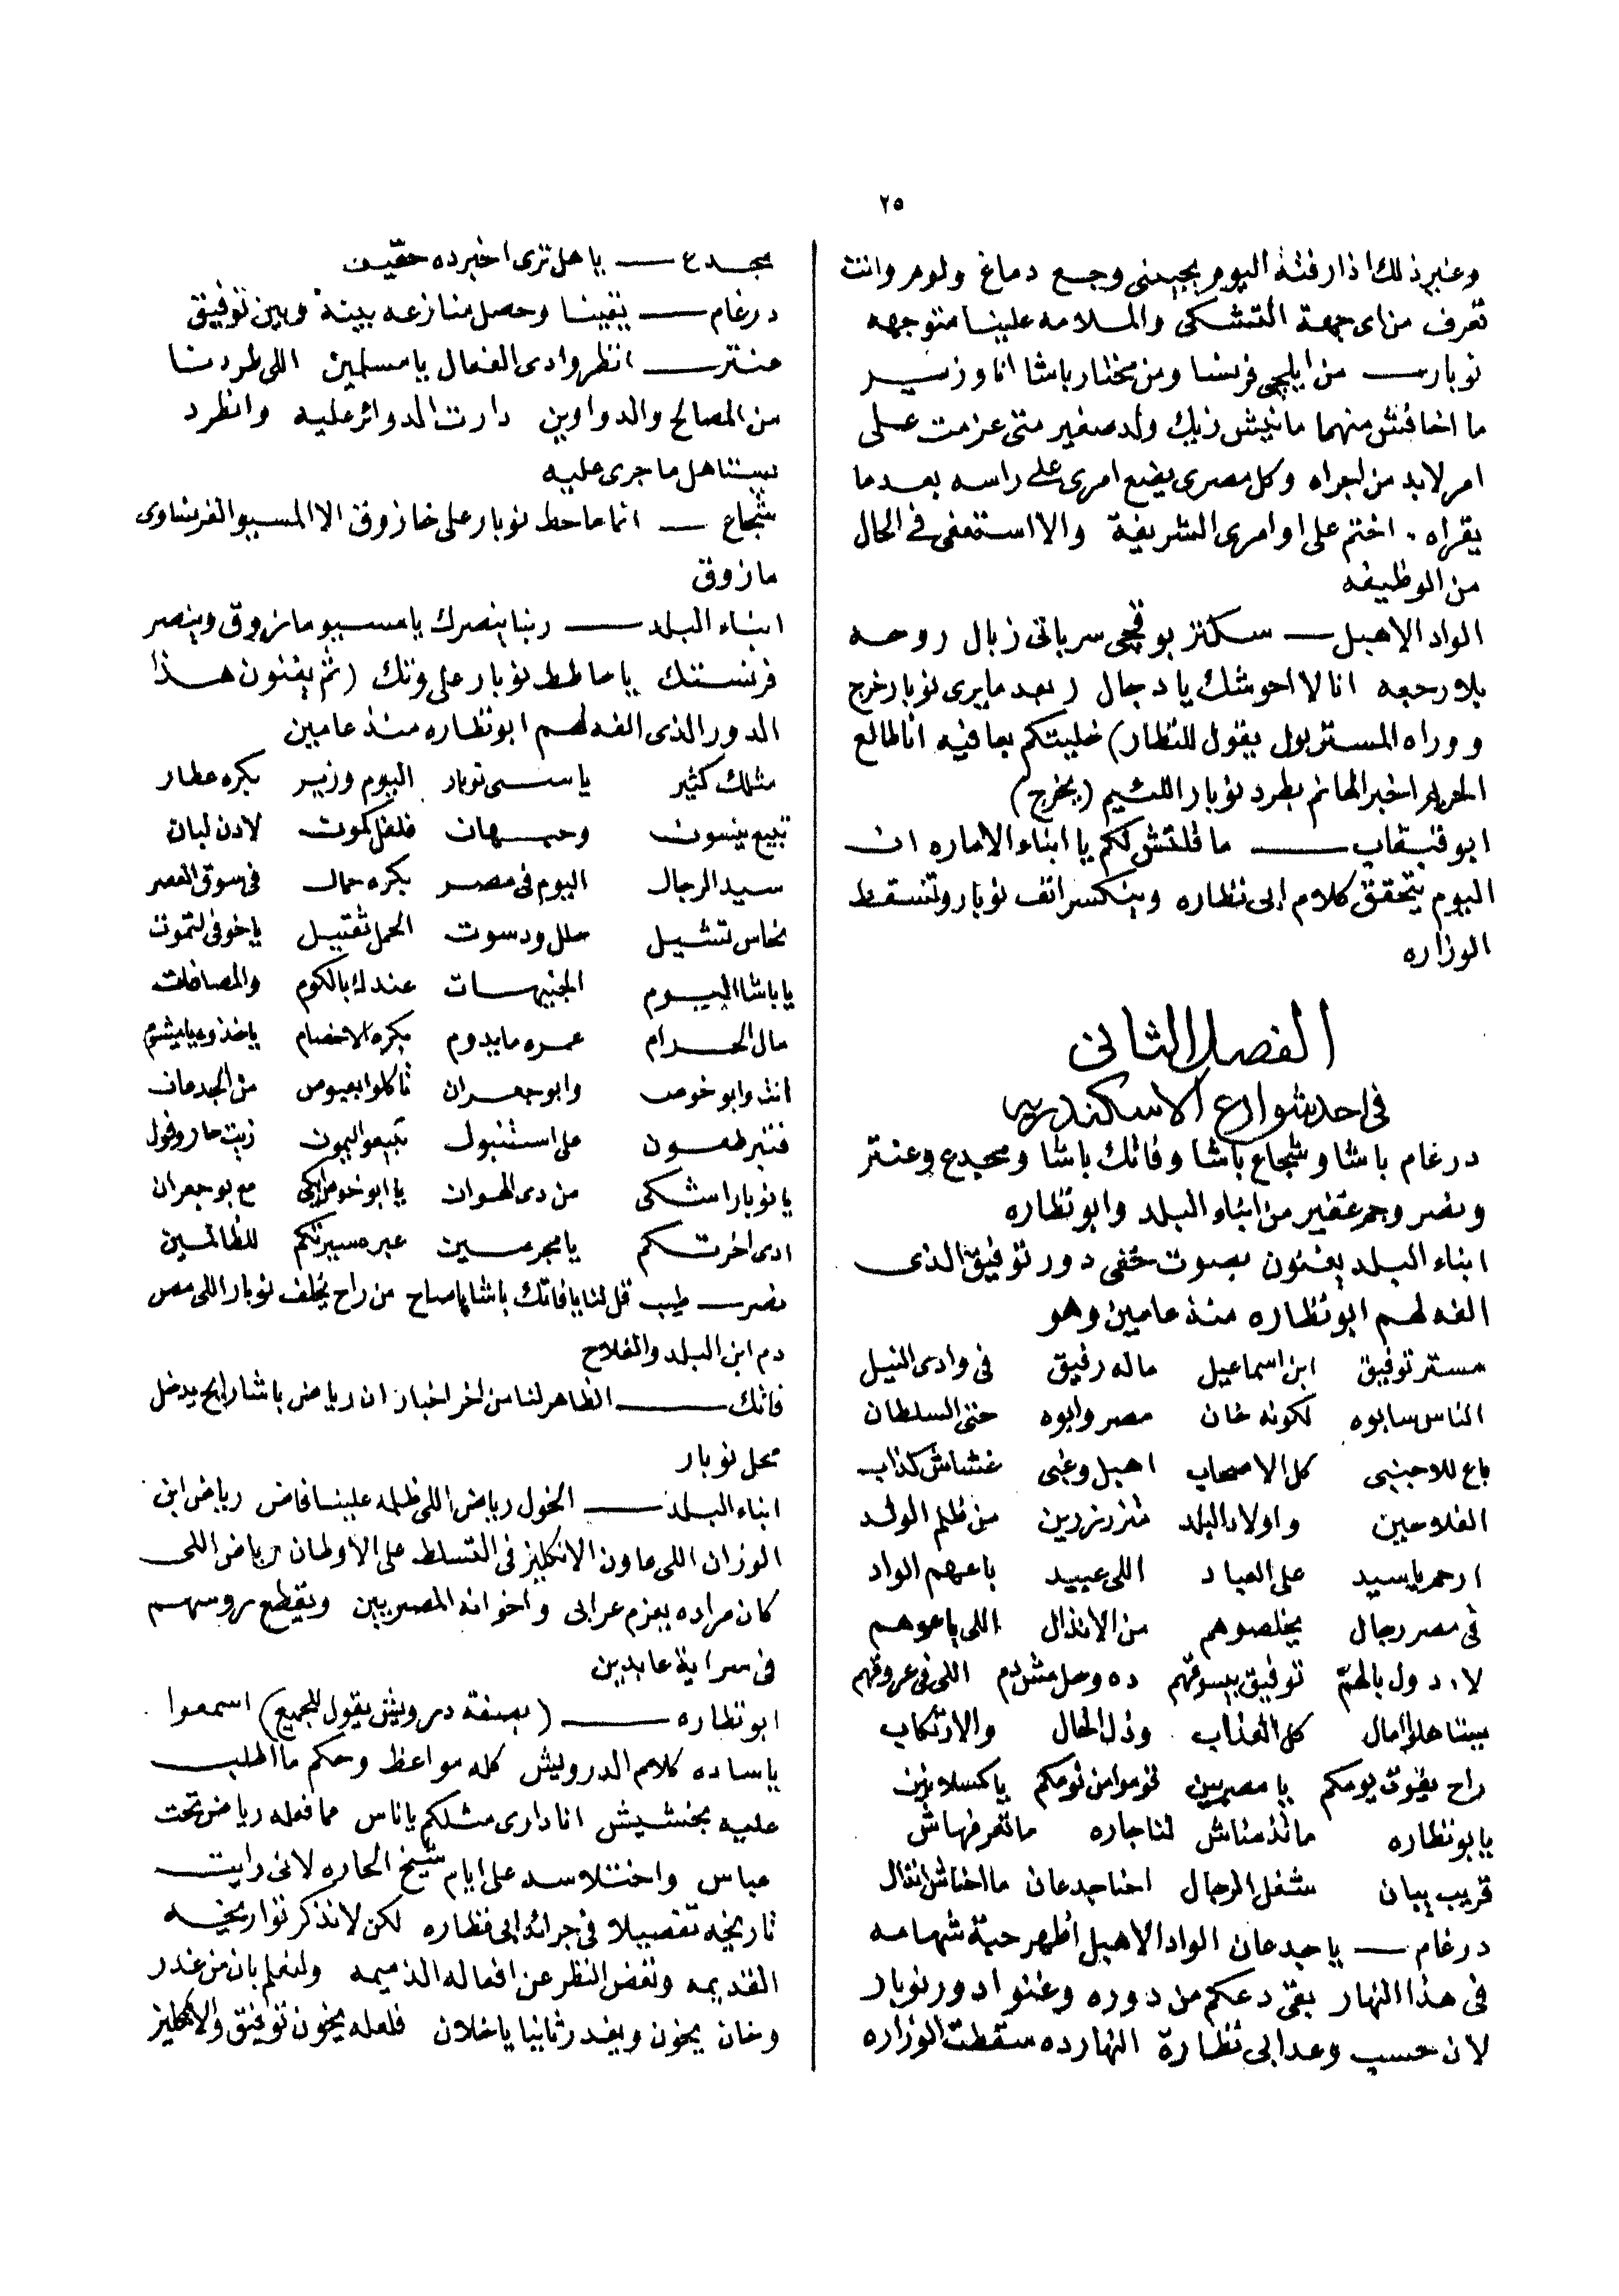 ٢٥
وغير ذلك اذا رفته اليوم يجيبنى وجع دماغ ولوم وانت
تعرف من اى جهة التشكى والملامه علينا متوجهه
نوبار — من ايلچى فرنسا ومن مختار باشا انا وزير
ما اخافش منهما مانيش زيك ولد صغير متى عزمت على
امر لابد من اجراه وكل مصرى يضع امرى على راسه بعد ما
يقراه . اختم على اوامرى الشريفة والا استعفى فى الحال
من الوظيفه
الواد الاهبل — سكتر بوقچى سرباتى زبال روحه
بلا رجعه انا لا احوشك يا دجال (بعد ما يرى نوبار خرج
ووراه المستر بول يقول للنظار) خليتكم بعافيه انا طالع
الحريم اخبر الهانم بطرد نوبار اللئيم (يخرج)
ابو قبقاب — ما قلتش لكم يا ابناء الاماره ان
اليوم يتحقق كلام ابى نظاره وينكسر انف نوبار وتسقط
الوزاره
الفصل الثانى
فى احد شوارع الاسكندريه
درغام باشا وشجاع باشا وفاتك باشا ومجدع وعنتر
ونصر وجم غفير من ابناء البلد وابو نظاره
ابناء البلد يغنون بصوت خفى دور توفيق الذى
الفه لهم ابو نظاره منذ عامين وهو
مستر توفيق ابن اسماعيل ماله رفيق فى وادى النيل
الناس سابوه لكونه خان مصر وابوه حتى السلطان
باع للاجنبى كل الاصحاب اهبل وغبى غشاش كذاب
الفلاحين واولاد البلد من ظلم الولد
ارحم يا سيد على العباد اللى عبيد باعهم الواد
فى مصر رجال يخلصوهم من الانذال اللى باعوهم
لا دول بالهم توفيق بيسوقهم ده وحل مش دم اللى فى عروقهم
يستاهلوا امال كل العذاب وذل الحال والارتكاب
راح يفوت يومكم يا مصريين قوموا من نومكم يا كسلانين
يا بو نظاره ماتذمناش لنا جاره ماتعرفهاش
قريب يبان شغل الرجال احنا جدعان ما احناش انذال
درغام — يا جدعان الواد الاهبل اظهر حبة شهامه
فى هذا النهار بقى دعكم من دوره وغنوا دور نوبار
لان حسب وعد ابى نظارة النهارده سقطت الوزاره
مجدع — يا هل ترى اخبر ده حقيق
درغام — يقينا وحصل منازعه بينه وبين توفيق
عنتر — انظروا دى الفعال يا مسلمين اللى طردنا
من المصالح والدواوين دارت الدوائر عليه وانطرد
يستاهل ما جرى عليه
شجاع — انما ما حط نوبار على خازوق الا المسيو الفرنساوى
مازوق
ابناء البلد — ربنا ينصرك يا مسيو مازوق وينصر
فرنستك يا ما طط نوبار على ونك (ثم يغنون هذا
الدور الذى الفه لهم ابو نظاره منذ عامين
مثلك كثير يا سى نوبار اليوم وزير بكره عطار
تبيع ينسون وحبهان فلفل كمون لادن لبان
سيد الرجال اليوم فى مصر بكره حمال فى سوق العصر
نحاس تشيل حلل ودسوت الحمل ثقيل ياخوفى لتموت
يا باشا اليوم الجنيهات عندك بالكوم والمصاغات
مال الحرام عمره ما يدوم بكره الاخصام ياخذوه يا ميشوم
انت وابو خوص وابو جعران تاكلوا بعبوص من الجدعان
على استنبول تبيعوا اليمون زيت حار وفول
يا نوبار اشكى من دى الهوان يا ابو خوص ابكى مع بو جعران
ادى اخرتكم يا مجرمين عبره سيرتكم للظالمين
نصر — طيب قل لنا يا فاتك باشا يا صاح من راح يخلف نوبار اللى مص
دم ابن البلد والفلاح
فاتك — الظاهر لنا من اخر اخبار ان رياض باشا رايح يدخل
محل نوبار
ابناء البلد — الخول رياض اللى ظلمه علينا فاض رياض ابن
الوزان اللى عاون الانكليز فى التسلط على الاوطان رياض اللى
كان مراده يعزم عرابى واخوانه المصريين ويقطع روسهم
فى سراية عابدين
ابو نظاره — (بصفة درويش يقول للجميع) اسمعوا
يا ساده كلام الدرويش كله مواعظ وحكم ما اطلب
عليه بخشيش انا دارى مثلكم يا ناس مما فعله رياض تحت
عباس واختلاسه على ايام شيخ الحاره لانى رايت
تاريخه تفصيلا فى جرائد ابى نظاره لكن لا نذكر تواريخه
القديمه ونغض النظر عن افعاله الذميمه ولنعلم بان من غدر
وخان يخون ويغدر ثانيا يا خلان فلعله يخون توفيق والانكليز